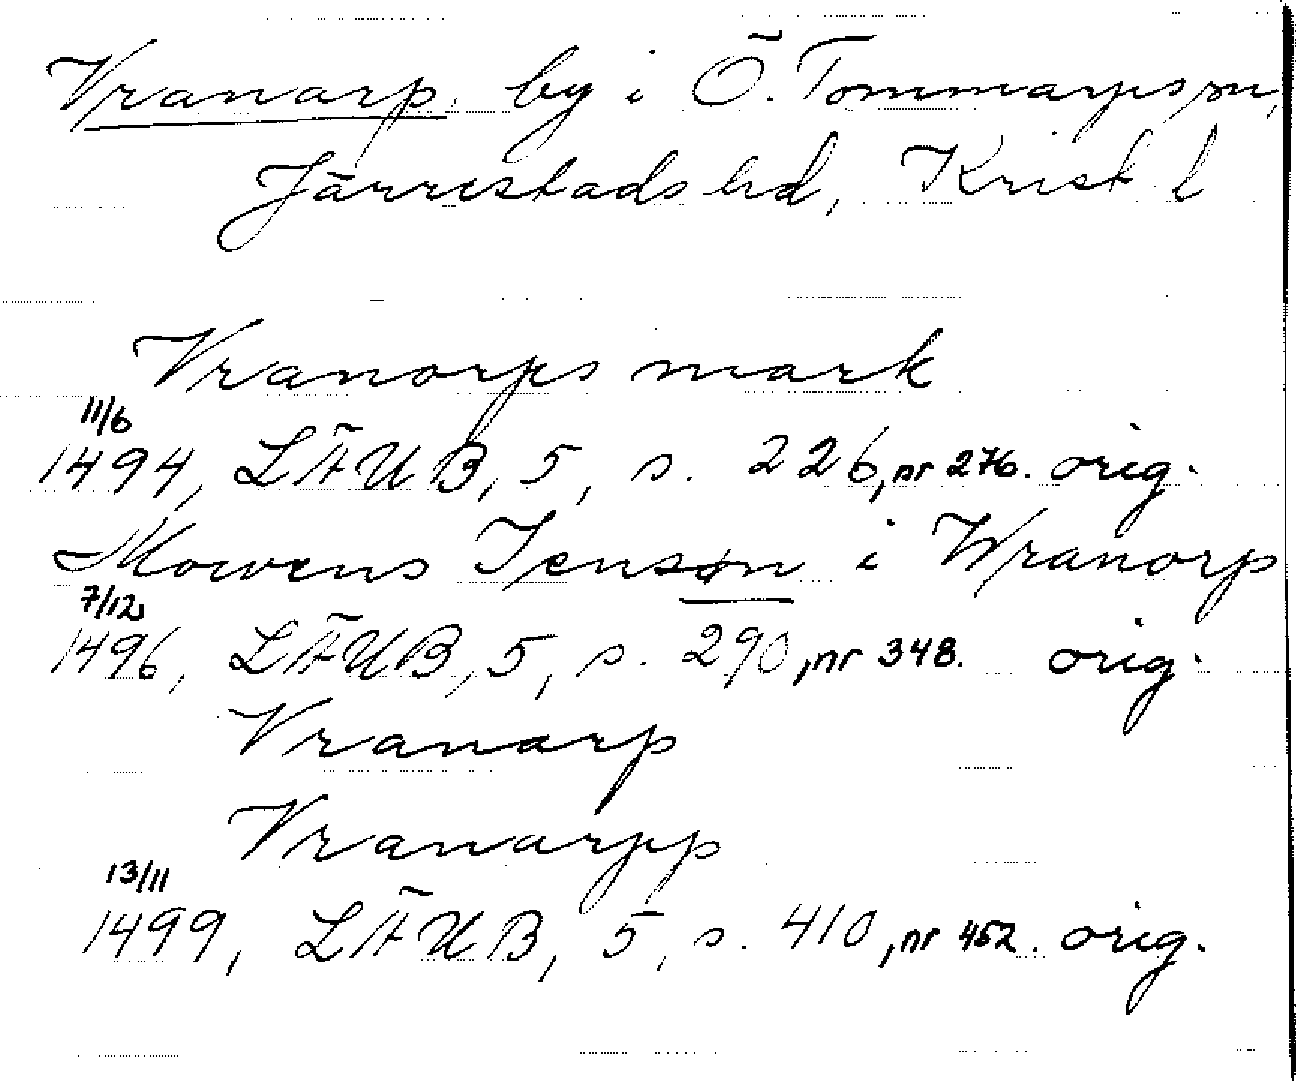 Vranarp, by i Ö. Tommarps sn,
Järrestads hd, Krist l
Vranorps mark
11/6
1494, LÄUB, 5, s. 226, nr 276. orig.
Mowens Jensøn i Wranorp
7/12
1496, LÄUB, 5, s. 290, nr 348. orig.
Vranarp
Vranarpp
13/11
1499, LÄUB, 5, s. 410, nr 452. orig.